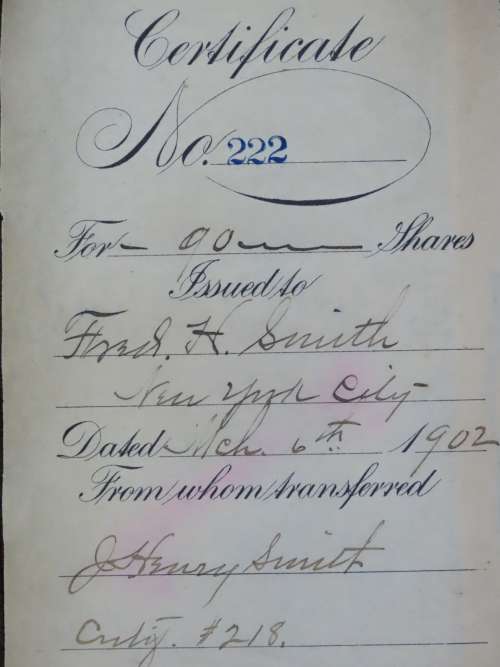 Certificate
No. 222
For 90 Shares
Issued to
Fred. H. Smith
New York City
Dated Mch. 6th 1902
From whom transferred
J Henry Smith
#218.